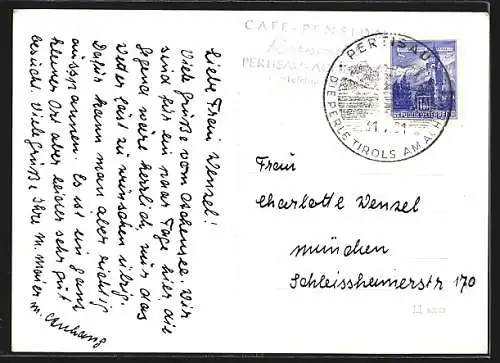 CAFE-PENSION
PERTISAU
PERTISAU
DIE PERLE TIROLS AM ACHENSEE
31.
REPUBLIK ÖSTERREICH
Liebe Frau Wenzel!
Viele Grüße vom Achensee. Wir
sind für ein paar Tage hier die
Gegend wäre herrlich, nur das
Weter läst zu wünschen übrig.
Dafür kann man aber richtig
ausspannen. Es ist ein ganz
kleiner Ort aber leider sehr gut
besucht. Viele Grüße Ihre M. Maier
m. Anhang
Frau
Charlotte Wenzel
München
Schleissheimerstr 170